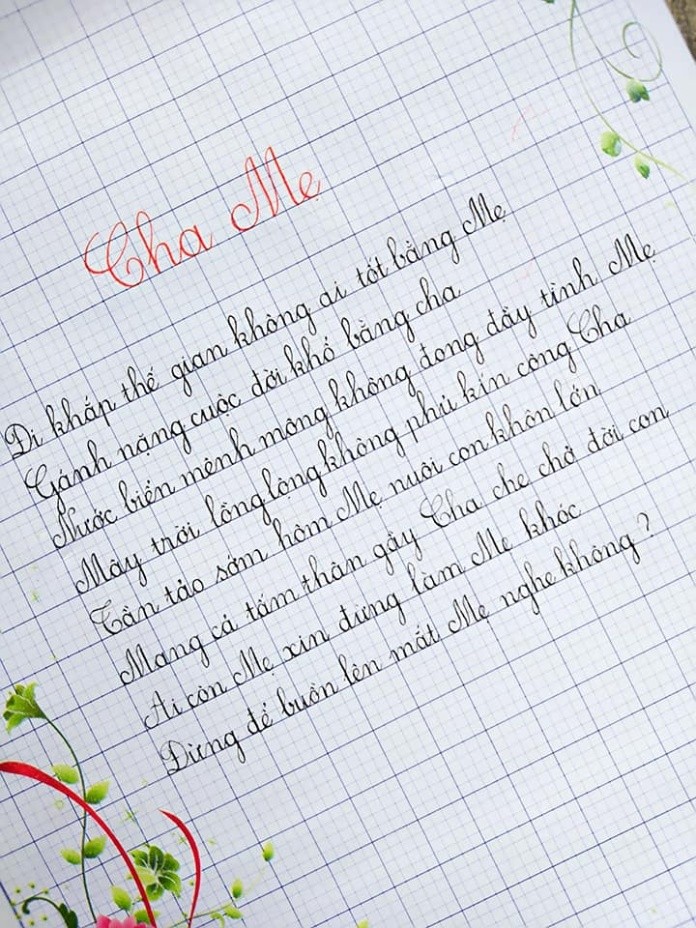 Cha Mẹ
Đi khắp thế gian không ai tốt bằng Mẹ
Gánh nặng cuộc đời khổ bằng cha
Nước biển mênh mông không đong đầy tình Mẹ
Mây trời lồng lộng không phủ kín công Cha
Tần tảo sớm hôm Mẹ nuôi con khôn lớn
Mang cả tấm thân gầy Cha che chở đời con
Ai còn Mẹ xin đừng làm Mẹ khóc
Đừng để buồn lên mắt Mẹ nghe không ?